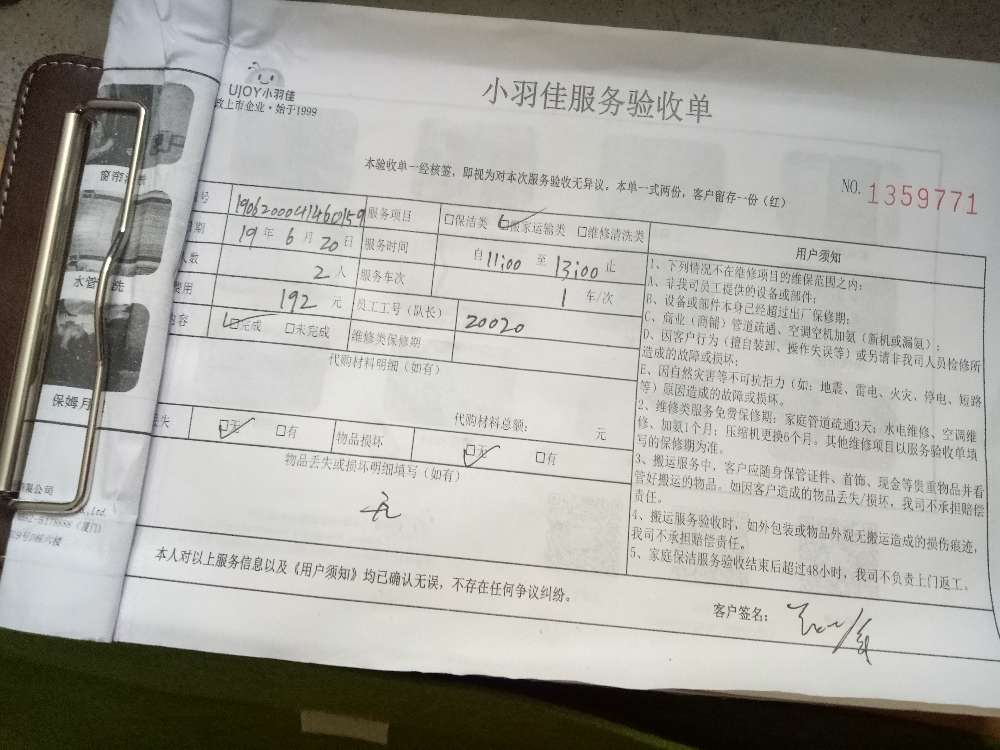 UJOY小羽佳
上市企业·始于1999
小羽佳服务验收单
本验收单一经核签，即视为对本次服务验收无异议。本单一式两份，客户留存一份（红）
NO. 1359771
号 服务项目 □保洁类 □搬家运输类 □维修清洗类
期 19年6月20日 服务时间 自11:00至13:00止
人数 2人 服务车次 1车/次
费用 192元 员工工号（队长） 20020
内容 □完成 □未完成 维修类保修期
代购材料明细（如有）
代购材料总额： 元
丢失 □无 □有 物品损坏 □无 □有
物品丢失或损坏明细填写（如有）
无
用户须知
1、下列情况不在维修项目的维保范围之内：
A、非我司员工提供的设备或部件；
B、设备或部件本身已经超过出厂保修期；
C、商业（商铺）管道疏通、空调空机加氨（新机或漏氨）；
D、因客户行为（擅自装卸、操作失误等）或另请非我司人员检修所
造成的故障或损坏；
E、因自然灾害等不可抗拒力（如：地震、雷电、火灾、停电、短路
等）原因造成的故障或损坏。
2、维修类服务免费保修期：家庭管道疏通3天；水电维修、空调维
修、加氨1个月；压缩机更换6个月。其他维修项目以服务验收单填
写的保修期为准。
3、搬运服务中，客户应随身保管证件、首饰、现金等贵重物品并看
管好搬运的物品。如因客户造成的物品丢失/损坏，我司不承担赔偿
责任。
4、搬运服务验收时，如外包装或物品外观无搬运造成的损伤痕迹，
我司不承担赔偿责任。
5、家庭保洁服务验收结束后超过48小时，我司不负责上门返工。
本人对以上服务信息以及《用户须知》均已确认无误，不存在任何争议纠纷。
客户签名：
窗帘
水管 洗
保姆月
有限公司
Ltd.
（厦门）